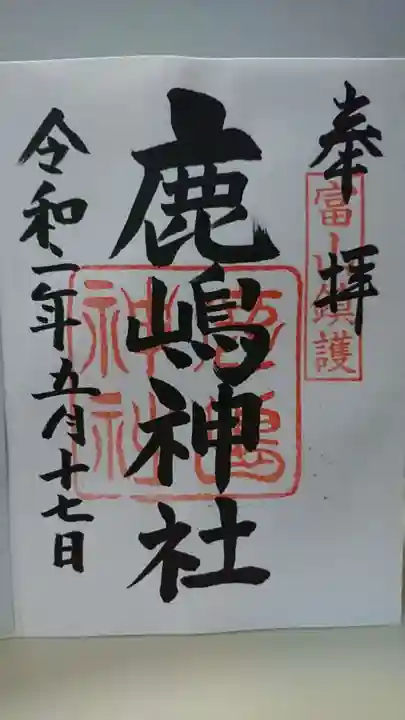 奉拝
富山鎮護
鹿嶋神社
鹿嶋神社
令和二年五月十七日